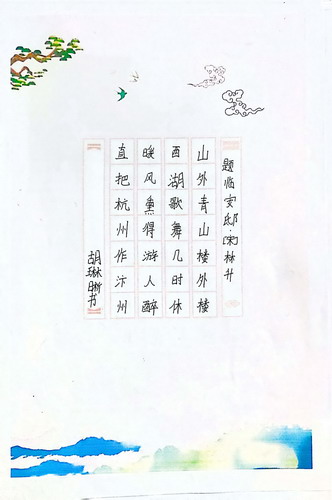 题临安邸·[宋]林升
山外青山楼外楼
西湖歌舞几时休
暖风熏得游人醉
直把杭州作汴州
胡琳晰书